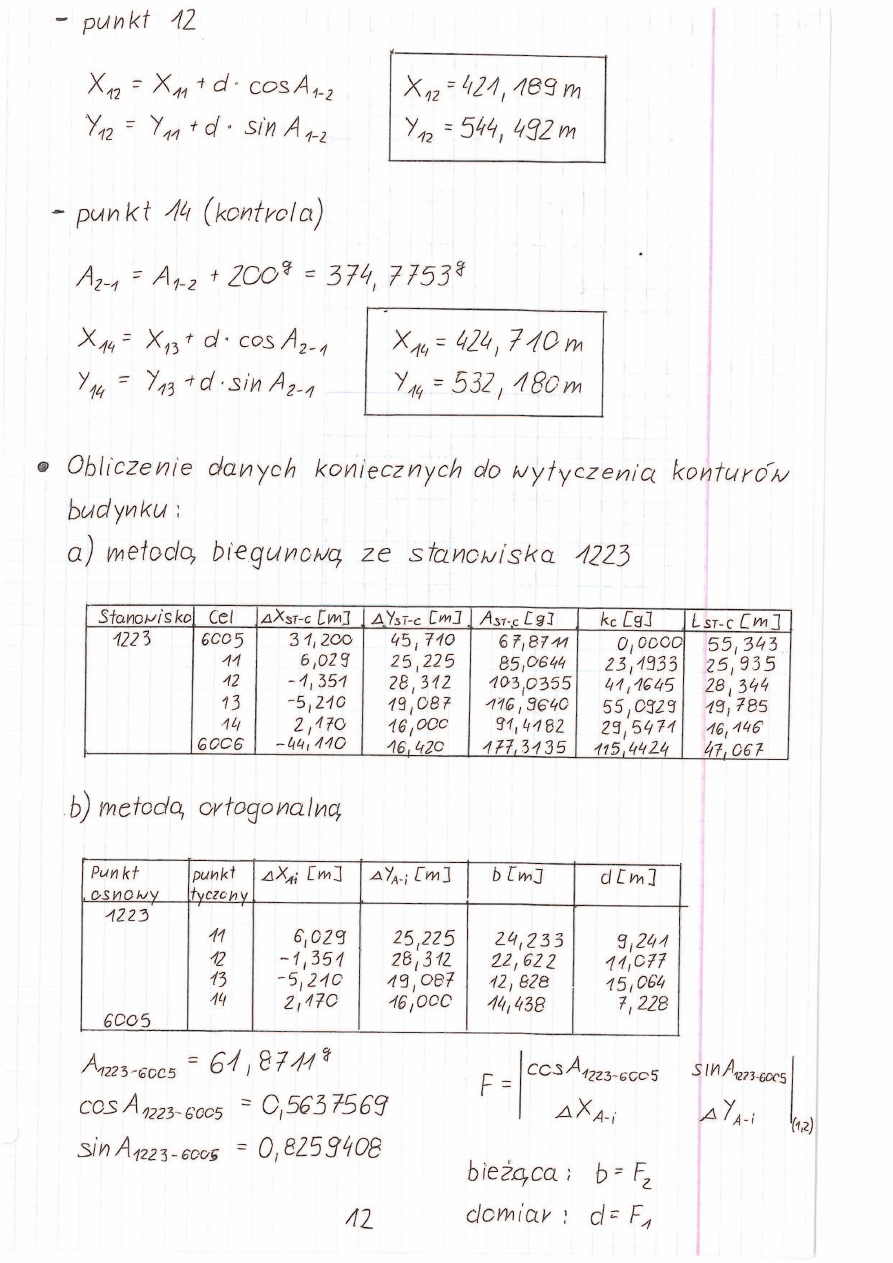 - punkt 12
X₁₂ = X₁₁ + d · cos A₁₋₂ X₁₂ = 421,189 m
Y₁₂ = Y₁₁ + d · sin A₁₋₂ Y₁₂ = 544,492 m
- punkt 14 (kontrola)
A₂₋₁ = A₁₋₂ + 200ᵍ = 374,7753ᵍ
X₁₄ = X₁₃ + d · cos A₂₋₁ X₁₄ = 424,710 m
Y₁₄ = Y₁₃ + d · sin A₂₋₁ Y₁₄ = 532,180 m
• Obliczenie danych koniecznych do wytyczenia konturów
budynku:
a) metodą biegunową ze stanowiska 1223
Stanowisko Cel ΔXST-C [m] ΔYST-C [m] AST-C [g] kc [g] LST-C [m]
1223 6005 31,200 45,710 67,8711 0,0000 55,343
11 6,029 25,225 85,0644 23,1933 25,935
12 -1,351 28,312 103,0355 41,1645 28,344
13 -5,210 19,087 116,9640 55,0929 19,785
14 2,170 16,000 91,4182 29,5471 16,146
6006 -44,110 16,420 177,3135 115,4424 47,067
b) metodą ortogonalną
Punkt osnowy punkt tyczony ΔX₁i [m] ΔYA-i [m] b [m] d [m]
1223
11 6,029 25,225 24,233 9,241
12 -1,351 28,312 22,622 11,077
13 -5,210 19,087 12,828 15,064
14 2,170 16,000 14,438 7,228
6005
A₁₂₂₃₋₆₀₀₅ = 61,8711ᵍ
cos A₁₂₂₃₋₆₀₀₅ = 0,5637569
sin A₁₂₂₃₋₆₀₀₅ = 0,8259408
F = |cos A₁₂₂₃₋₆₀₀₅ sin A₁₂₂₃₋₆₀₀₅|
ΔXA-i ΔYA-i (1,2)
bieżąca: b = F₂
domiar: d = F₁
12